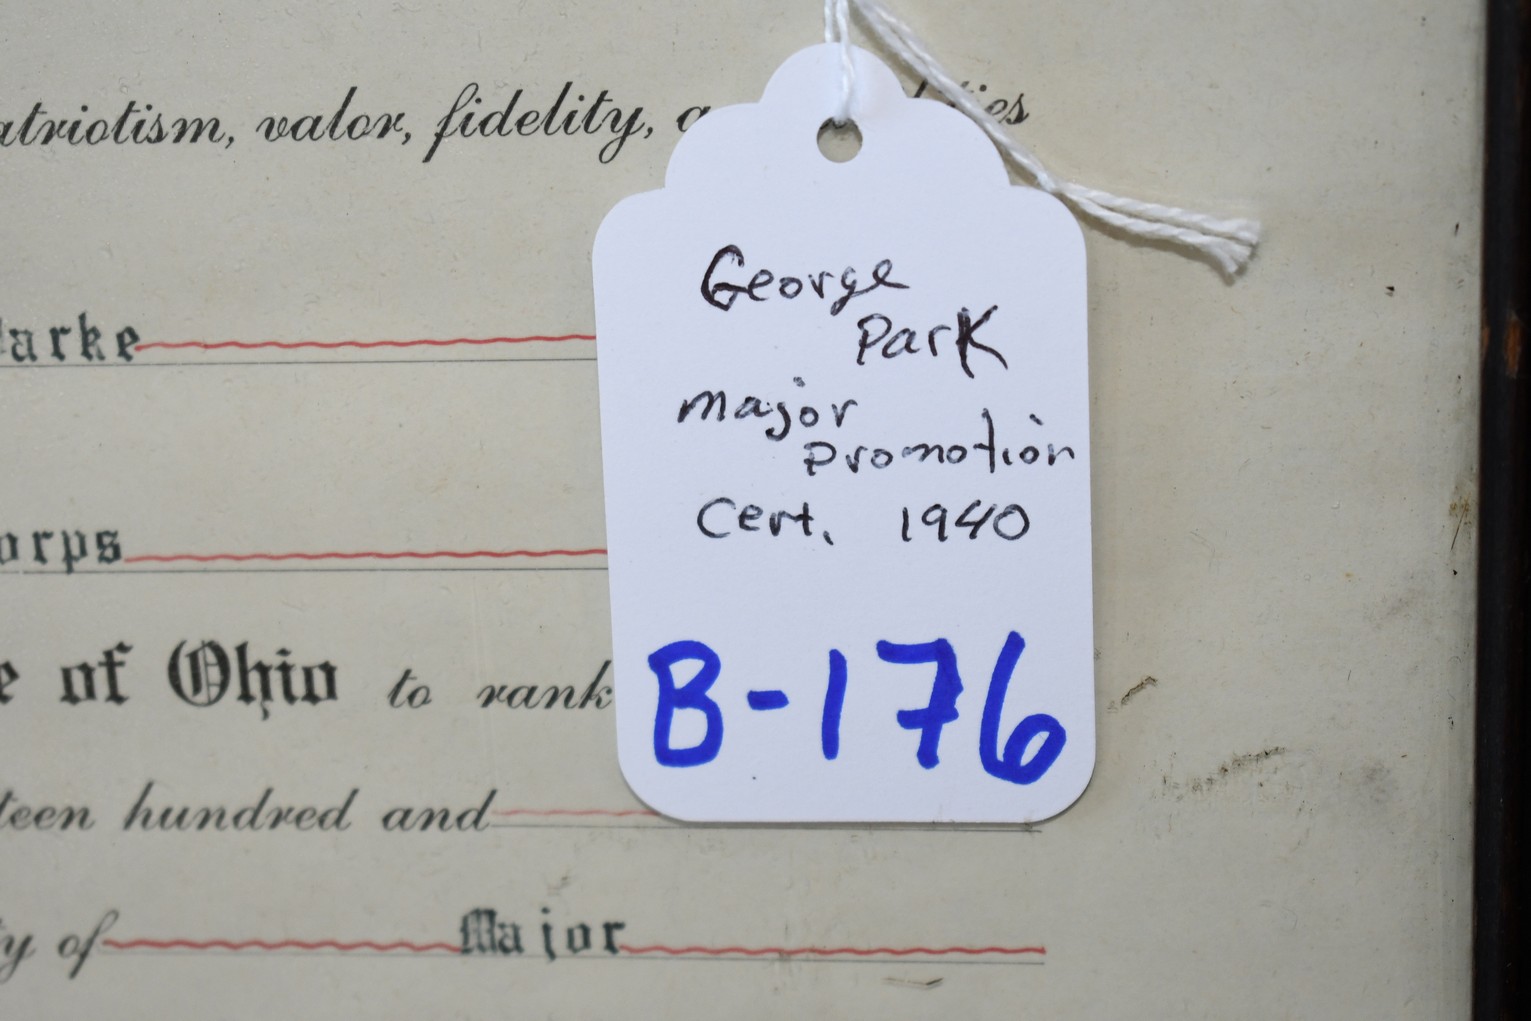 atriotism, valor, fidelity, a
ties
arke
orps
e of Ohio to rank
teen hundred and
y of Major
George
Park
Major
Promotion
Cert. 1940
B-176